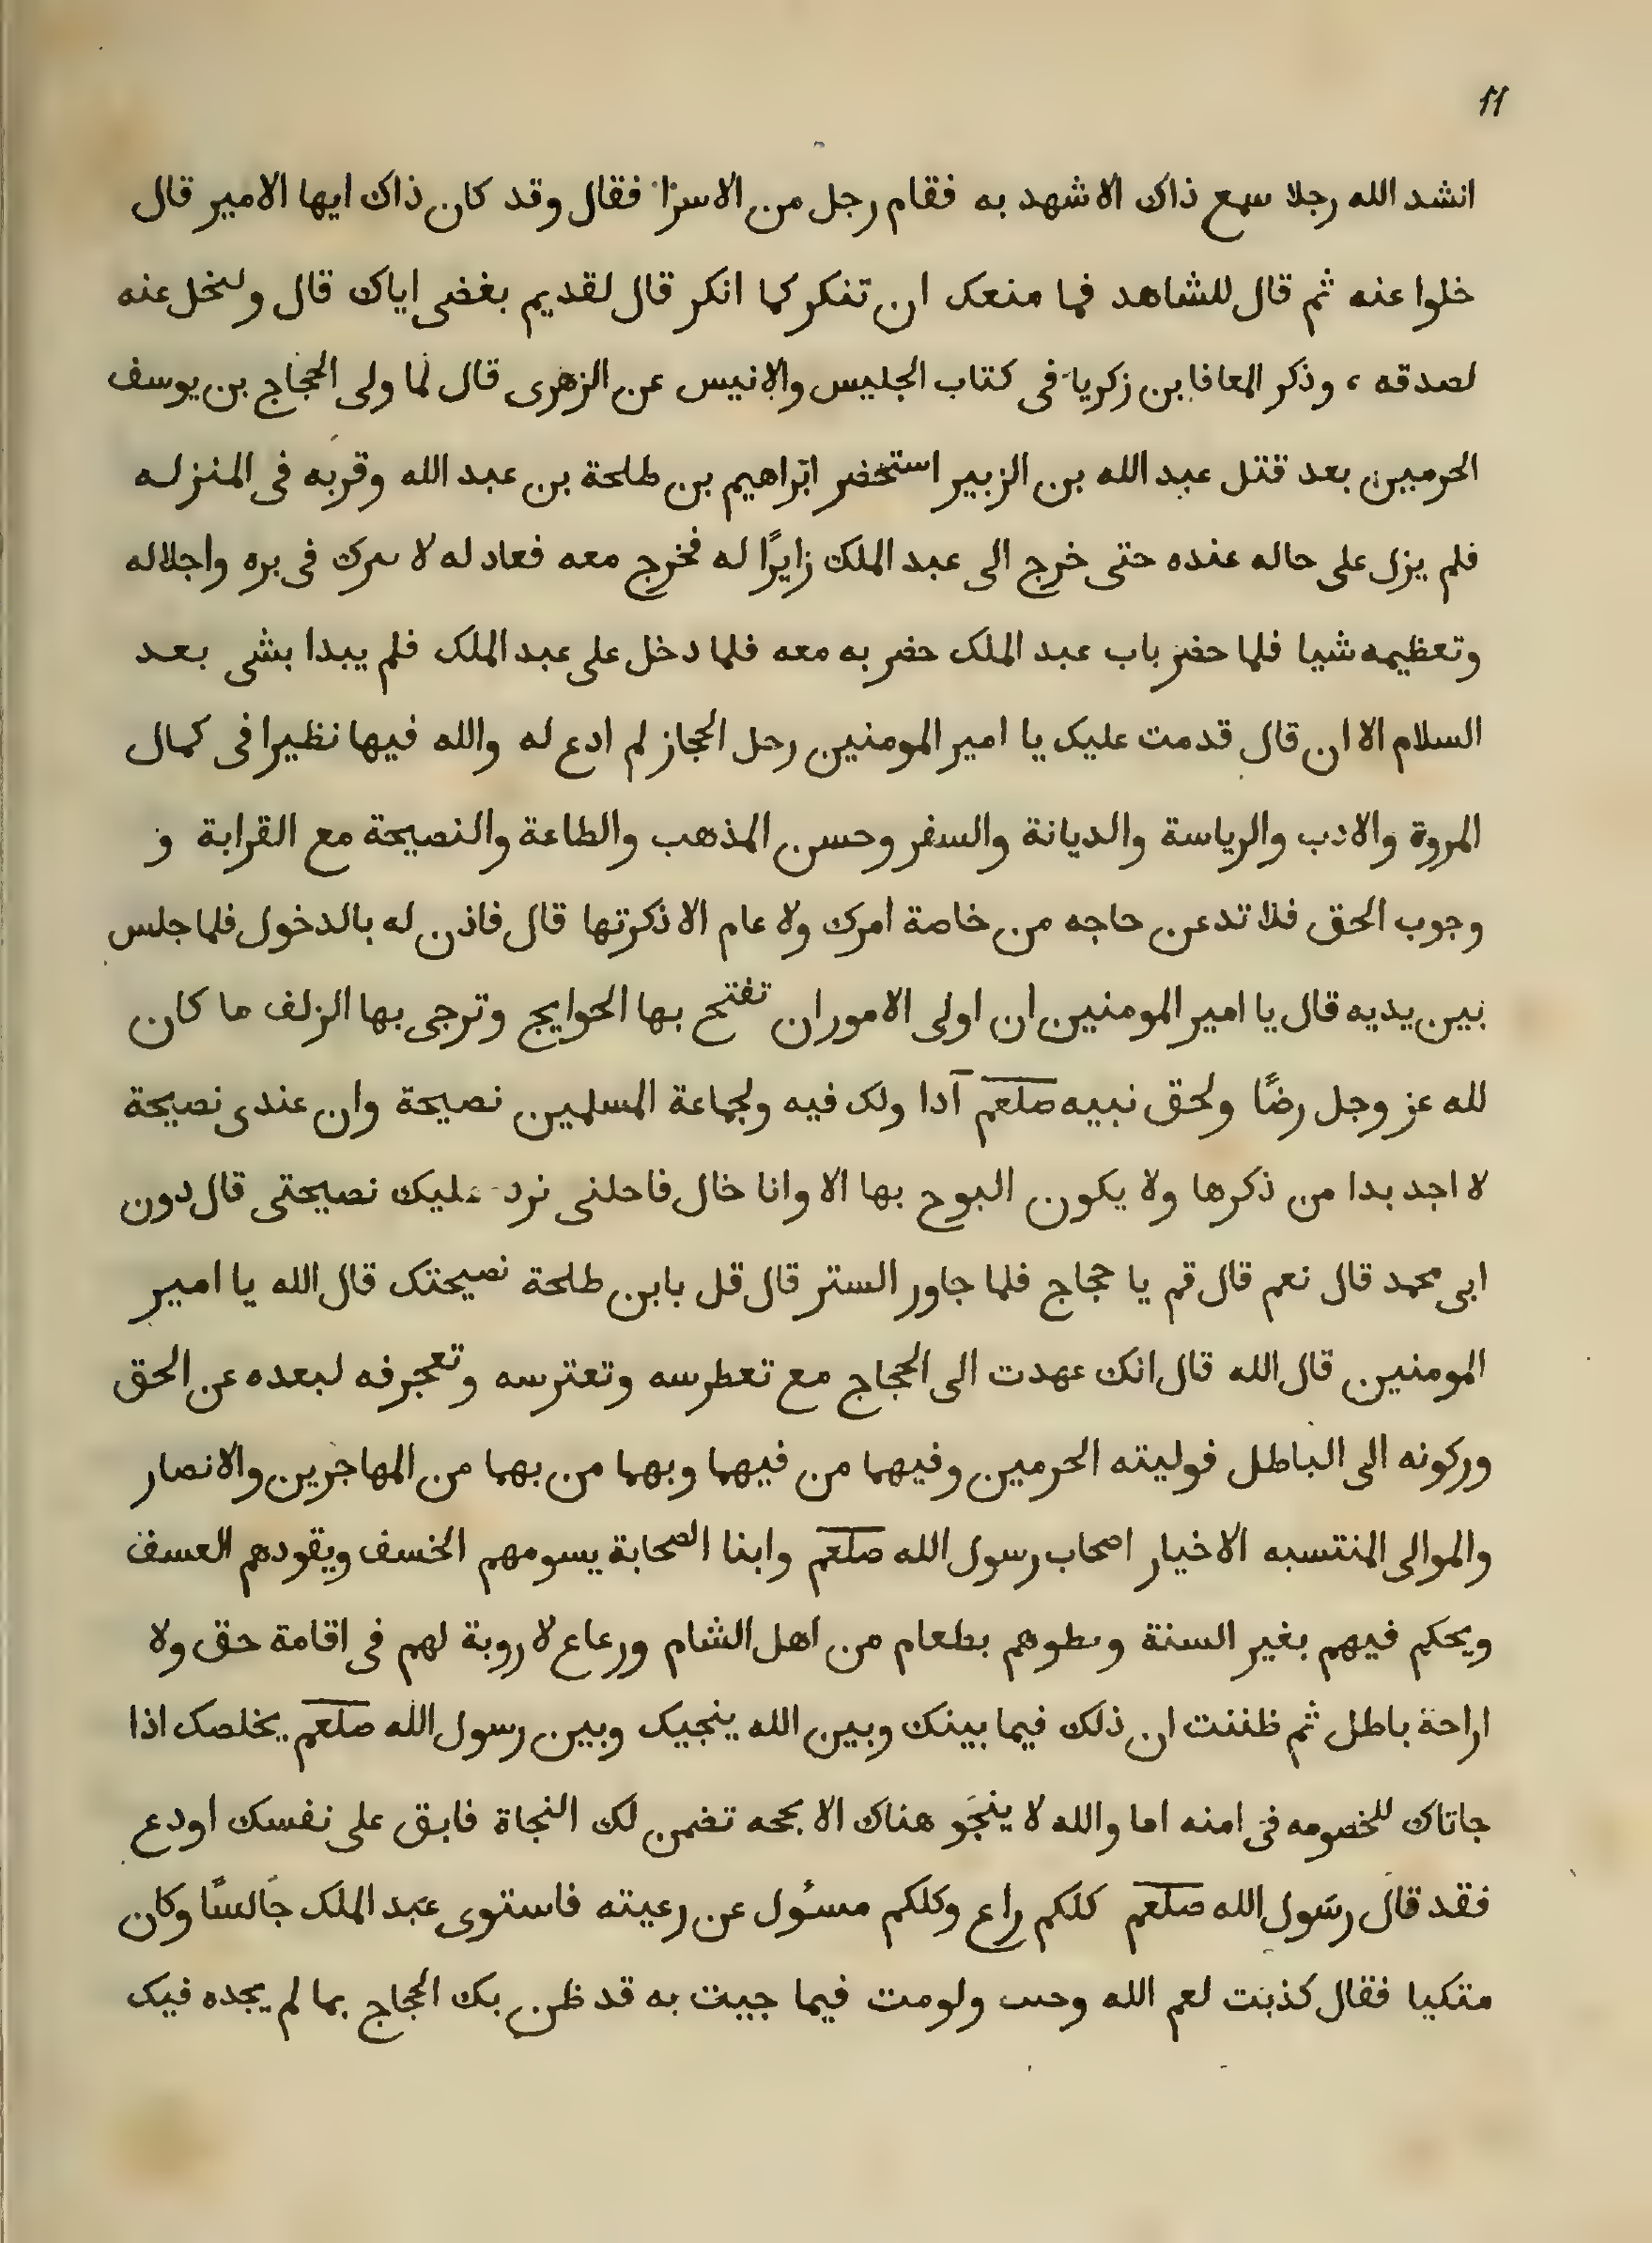 ١١
انشد الله رجلا سمع ذاك الا شهد به فقام رجل من الاسرا فقال وقد كان ذاك ايها الامير قال
خلوا عنه ثم قال للشاهد فما منعك ان تنكر كما انكر قال لقديم بغضى اياك قال ولنخل عنه
لصدقه ، وذكر المعافا بن زكريا فى كتاب الجليس والانيس عن الزهرى قال لما ولى الحجاج بن يوسف
الحرمين بعد قتل عبد الله بن الزبير استحضر ابراهيم بن طلحة بن عبد الله وقربه فى المنزله
فلم يزل على حاله عنده حتى خرج الى عبد الملك زايرًا له فخرج معه فعاد له لا سرك فى بره واجلاله
وتعظيمه شيا فلما حضر باب عبد الملك حضر به معه فلما دخل على عبد الملك فلم يبدا بشى بعد
السلام الا ان قال قدمت عليك يا امير المومنين رحل الحجاز لم ادع له والله فيها نظيرا فى كمال
المروة والادب والرياسة والديانة والسفر وحسن المذهب والطاعة والنصيحة مع القرابة و
وجوب الحق فلا تدعن حاجه من خاصة امرك ولا عام الا ذكرتها قال فاذن له بالدخول فلما جلس
بين يديه قال يا امير المومنين ان اولى الامور ان تفتح بها الحوايج وترجى بها الزلف ما كان
لله عز وجل رضًا ولحق نبيه صلعم آدا ولك فيه ولجماعة المسلمين نصيحة وان عندى نصيحة
لا اجد بدا من ذكرها ولا يكون البوح بها الا وانا خال فاحلنى نرد عليك نصيحتى قال دون
ابى محمد قال نعم قال قم يا حجاج فلما جاور الستر قال قل بابن طلحة نصيحتك قال الله يا امير
المومنين قال الله قال انك عهدت الى الحجاج مع تعطرسه وتعترسه وتعجرفه لبعده عن الحق
وركونه الى الباطل فوليته الحرمين وفيهما من فيهما وبهما من بهما من المهاجرين والانصار
والموالى المنتسبه الاخيار اصحاب رسول الله صلعم وابنا الصحابة يسومهم الخسف ويقودهم العسف
ويحكم فيهم بغير السنة وىطوهم بطعام من اهل الشام ورعاع لا روبة لهم فى اقامة حق ولا
اراحة باطل ثم ظننت ان ذلك فيما بينك وبين الله ينجيك وبين رسول الله صلعم يخلصك اذا
جاتاك للخصومه فى امنه اما والله لا ينجو هناك الا بحجه تضمن لك النجاة فابق على نفسك اودع
فقد قال رسول الله صلعم كلكم راع وكلكم مسئول عن رعيته فاستوى عبد الملك جالسًا وكان
متكيا فقال كذبت لعم الله وحىى ولومت فيما جيت به قد ظن بك الحجاج بما لم يجده فيك